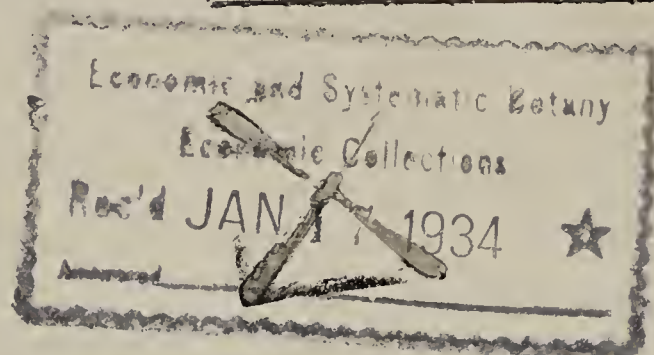 Economic and Systematic Botany
Economic Collections
Rec'd JAN 17 1934 ★
Answered